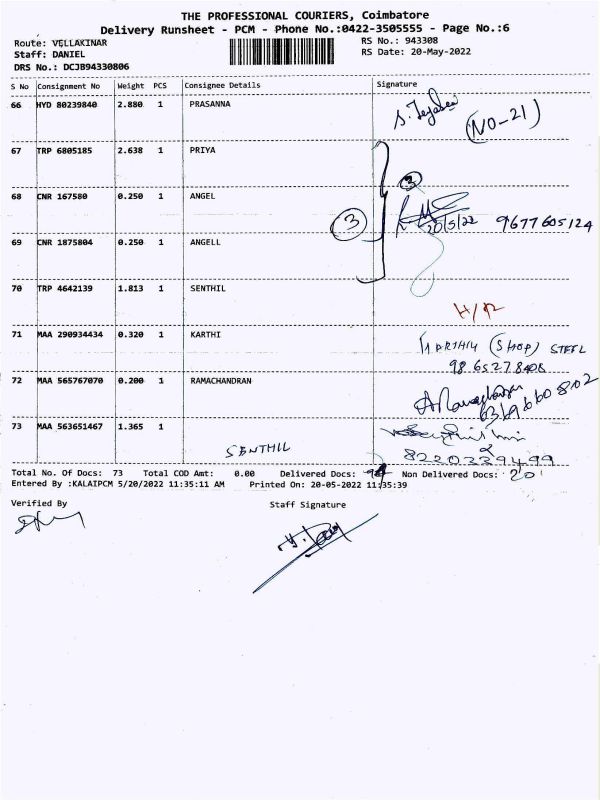 THE PROFESSIONAL COURIERS, Coimbatore
Delivery Runsheet - PCM - Phone No.:0422-3505555 - Page No.:6
Route: VELLAKINAR RS No.: 943308
Staff: DANIEL RS Date: 20-May-2022
DRS No.: DCJB94330806
S No Consignment No Weight PCS Consignee Details Signature
66 HYD 80239840 2.880 1 PRASANNA
(NO-21)
67 TRP 6805185 2.638 1 PRIYA
3
68 CNR 167580 0.250 1 ANGEL
3 20/5/22 9677605124
69 CNR 1875804 0.250 1 ANGELL
70 TRP 4642139 1.813 1 SENTHIL
71 MAA 290934434 0.320 1 KARTHI
KARTHIK (SHOP) STEEL
72 MAA 565767070 0.200 1 RAMACHANDRAN
73 MAA 563651467 1.365 1
SENTHIL
Total No. Of Docs: 73 Total COD Amt: 0.00 Delivered Docs: Non Delivered Docs: 20
Entered By :KALAIPCM 5/20/2022 11:35:11 AM Printed On: 20-05-2022 11:35:39
Verified By Staff Signature